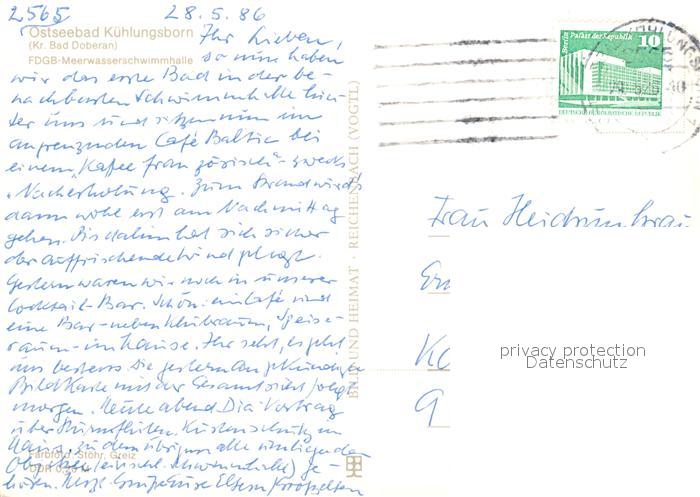 2565 28.5.86
Ostseebad Kühlungsborn
(Kr. Bad Doberan)
FDGB-Meerwasserschwimmhalle
Ihr Lieben,
so nun haben
wir das erste Bad in der be-
nachbarten Schwimmhalle hin-
ter uns und sitzen nun im
angrenzenden Café Baltic bei
einem "Kaffee französisch" zwecks
"Nacherholung". Zum Strand wird's
dann wohl erst am Nachmittag
gehen. Bis dahin hat sich sicher
der auffrischende Wind gelegt.
Gestern waren wir noch in unserer
Cocktail-Bar. Schön: ein Café und
eine Bar neben Klubraum, Speise-
raum im Hause. Ihr seht, es geht
uns bestens. Die gestern angekündigte
Bildkarte mit der Gesamtsicht folgt
morgen. Heute abend Dia-Vortrag
über Sturmfluten, Küstenschutz im
Haus, zu dem übrigens alle umliegenden
Objekte (einschl. Schwimmhalle) ge-
hören. Herzl. Grüße Eure Eltern/Großeltern
Farbfoto: Stöhr, Greiz
DDR
BILD UND HEIMAT · REICHENBACH (VOGTL)
Berlin Palast der Republik
10
DEUTSCHE DEMOKRATISCHE REPUBLIK
Frau Heidrun
privacy protection
Datenschutz